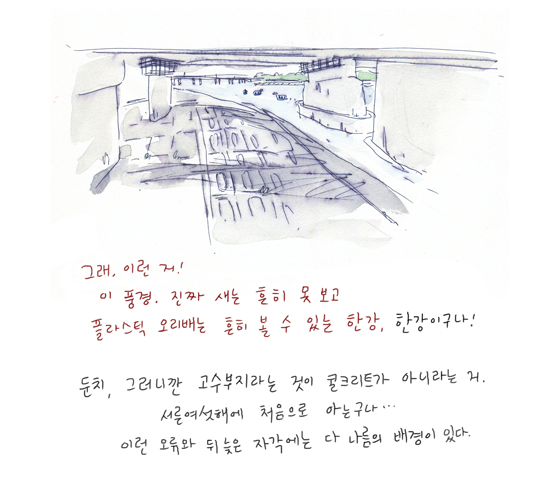 그래, 이런 거!
이 풍경. 진짜 새는 흔히 못 보고
플라스틱 오리배는 흔히 볼 수 있는 한강, 한강이구나!
둔치, 그러니깐 고수부지라는 것이 콘크리트가 아니라는 거.
서른여섯해에 처음으로 아는구나...
이런 오류와 뒤늦은 자각에는 다 나름의 배경이 있다.